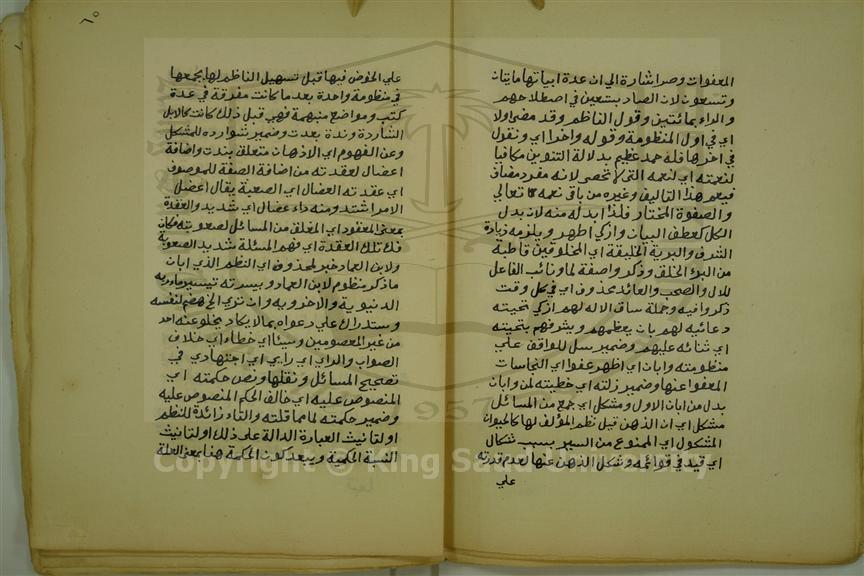 ٨٥
المعفوات وصر اشارة الي ان عدة ابياتها مايتان
وتسعون لان الصاد بتسعين في اصطلاحهم
والراء بمائتين وقول الناظم وقد مضي اولا
اي في اول المنظومة وقوله واخرا اي ونقول
في اخرها فله حمد عظيم بدلالة التنوين مكافيا
لنعمته اي لنعمه التي لا تحصر لانه مفرد مضاف
فيعم هذا التاليف وغيره من باقي نعمه تعالي
والصفوة المختار فلذا ابدله منه لان بدل
الكل كعطف البيان وازكي اطهر ويلزمه زيادة
الشرف والبرية الخليقة اي المخلوقين قاطبة
من البرء الخلق وذكر واصفة لما ونائب الفاعل
للال والصحب والعائد محذوف اي في كل وقت
ذكروا فيه وجملة ساق الاله لهم ازكي تحيته
دعائيه لهم بان يعظمهم ويشرفهم بتحيته
اي ثنائه عليهم وضمير سل للواقف علي
منظومته وابان اي اظهر عفوا اي النجاسات
المعفو عنها وضمير زلته اي خطيته لمن وابان
بدل من ابان الاول ومشكل اي جمع من المسائل
مشكل اي ان الذهن قبل نظم المؤلف لها كالحيوان
المشكول اي الممنوع من السير بسبب شكال
اي قيد في قوائمه وشكل الذهن عنها لعدم قدرته
علي
علي الخوض فيها قبل تسهيل الناظم لها بجمعها
في منظومة واحدة بعد ما كانت مفرقة في عدة
كتب ومواضع منبهمة فهي قبل ذلك كانت كالابل
الشاردة وندة بعدت وضمير شوارده للمشكل
وعن الفهوم اي الاذهان متعلق بندت واضافة
اعضال لعقدته من اضافة الصفة للموصوف
اي عقدته العضال اي الصعبة يقال اعضل
الامر اشتد ومنه داء عضال اي شديد والعقدة
بمعني المعقود اي المغلق من المسائل لصعوبته فكان
فك تلك العقدة اي فهم المسئلة شديد الصعوبة
ولابن العماد خبر لمحذوف اي النظم الذي ابان
ما ذكر منظوم لابن العماد وبيسرته تيسير ماربه
الدنيوية والاخرويه وان تري الخ هضم لنفسه
وستدراك علي دعواه بما لا يكاد يخلو عنه احد
من غير المعصومين وسيئا اي خطاء اي خلاف
الصواب والراي اي رايي اي اجتهادي في
تصحيح المسائل ونقلها ونص حكمته اي
المنصوص عليه اي خالف الحكم المنصوص عليه
وضمير حكمته لما مما قلته والتاء زائدة للنظم
او لتانيث العبارة الدالة علي ذلك او لتانيث
النسبة الحكمية ويبعد كون الحكمة هنا بمعني العلة
1957
Copyright © King Saud University